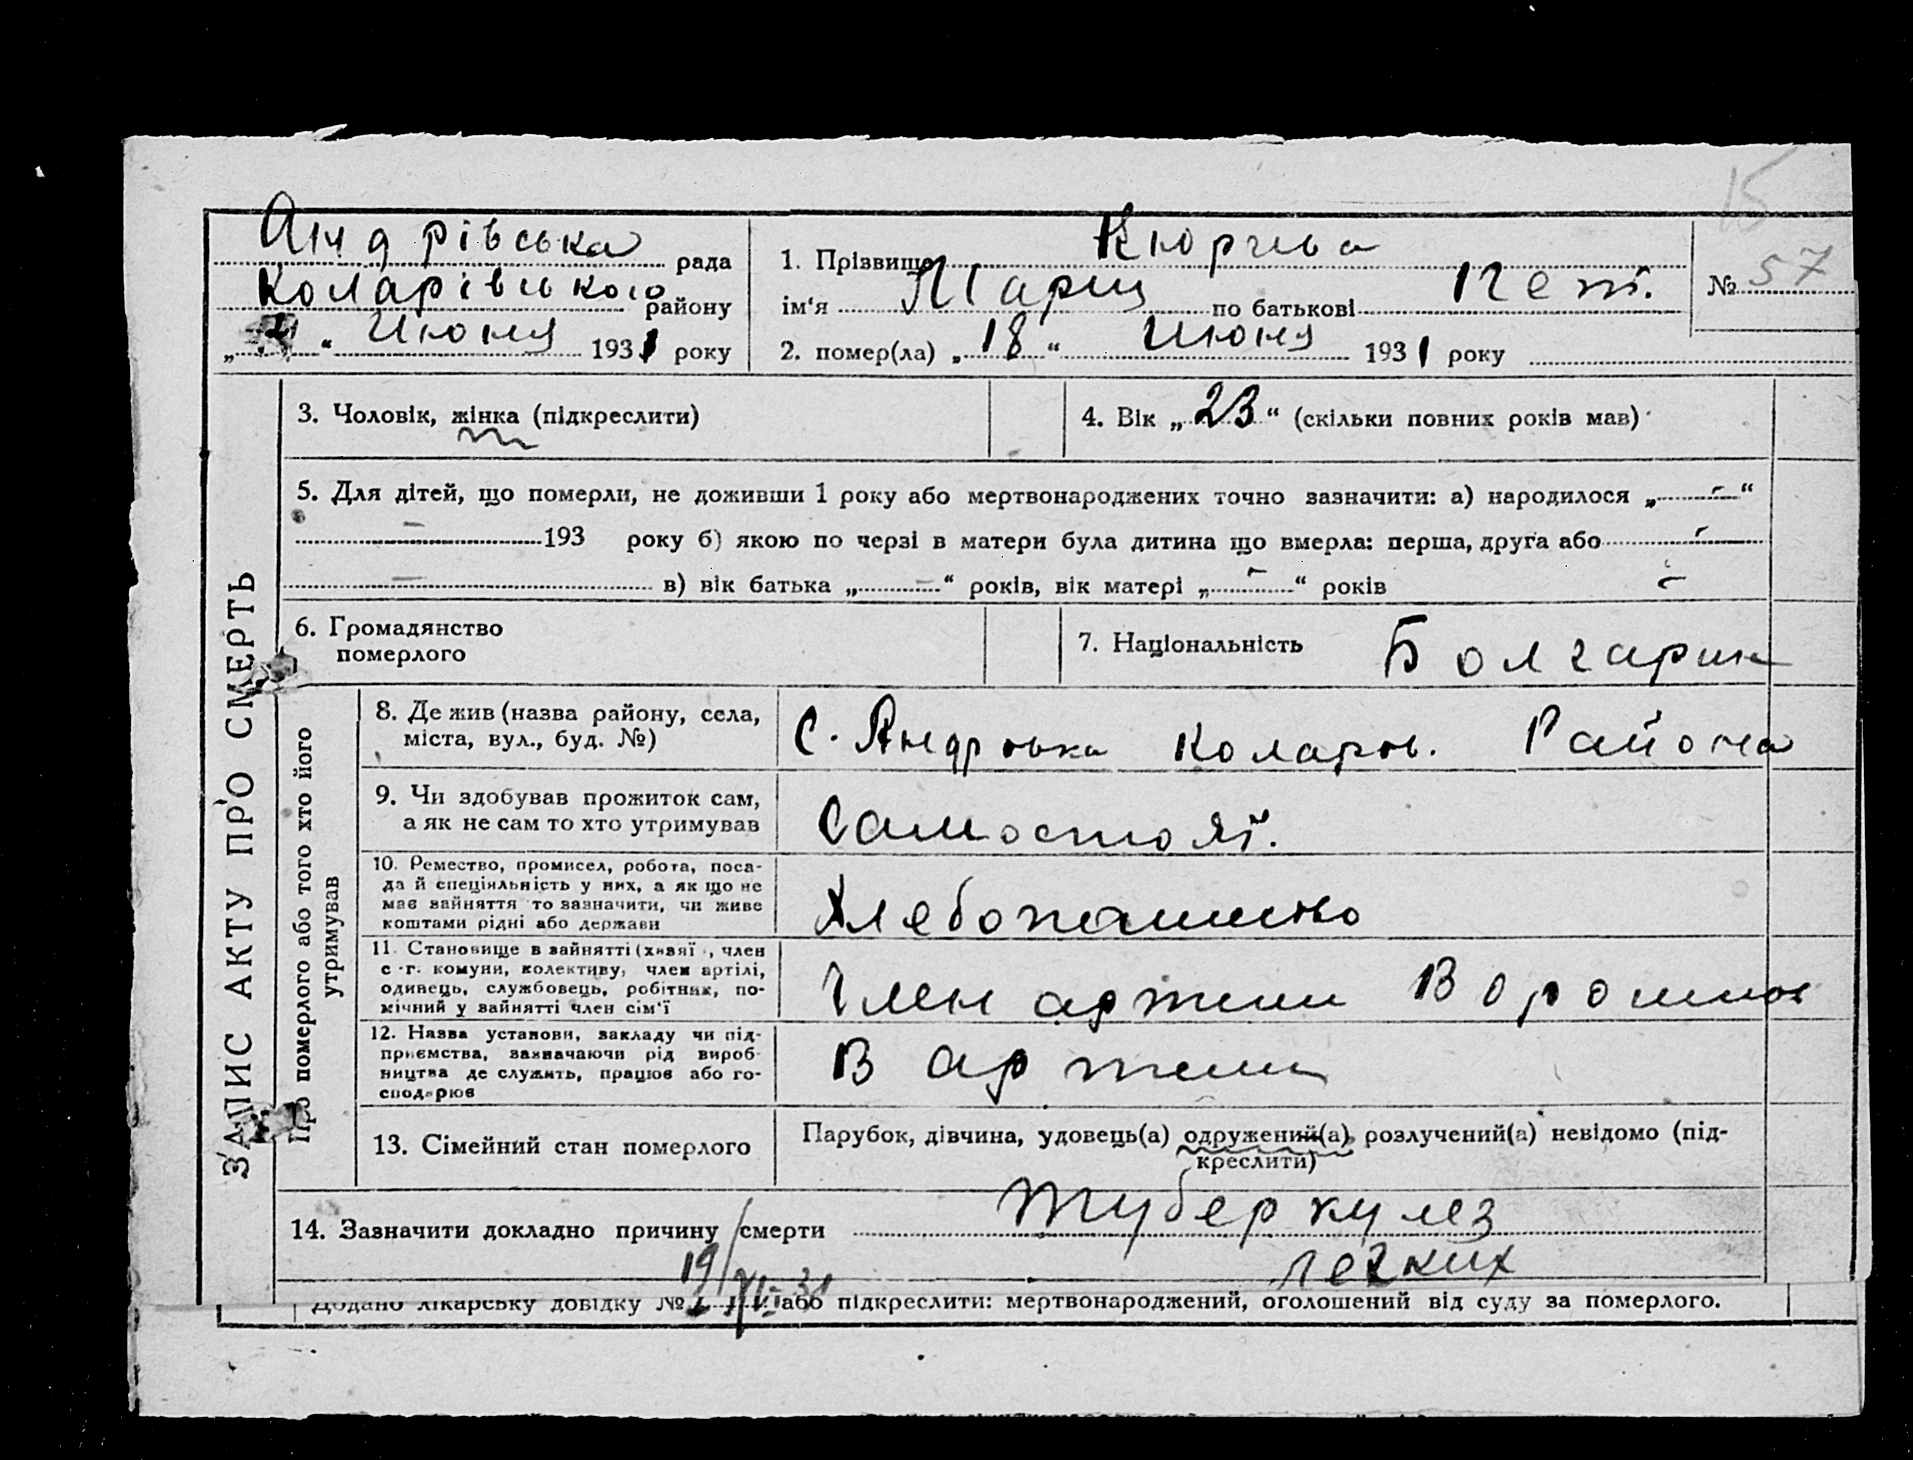 15
Андрівська рада
Коларівського району
„ “ Июня 1931 року
1. Прізвище Кюргьва
ім‘я Мария по батькові Пет.
№ 57
2. помер(ла) „18“ Июня 1931 року
ЗАПИС АКТУ ПРО СМЕРТЬ
3. Чоловік, жінка (підкреслити)
4. Вік „23“ (скільки повних років мав)
5. Для дітей, що померли, не доживши 1 року або мертвонароджених точно зазначити: а) народилося „-“
- 193 року б) якою по черзі в матери була дитина що вмерла: перша, друга або -
- в) вік батька „-“ років, вік матері „-“ років -
6. Громадянство
померлого
7. Національність Болгарин
Про померлого або того хто його
утримував
8. Де жив (назва району, села,
міста, вул., буд. №)
с. Андровка Коларов. Района
9. Чи здобував прожиток сам,
а як не сам то хто утримував
Самостоят.
10. Ремество, промисел, робота, поса-
да й спеціяльність у них, а як що не
має зайняття то зазначити, чи живе
коштами рідні або держави
11. Становище в зайнятті (хазяї , член
с.-г. комуни, колективу, член артілі,
одинець, службовець, робітник, по-
мічний у зайнятті член сім‘ї
Член артели
12. Назва установи, закладу чи під-
приємства, зазначаючи рід вироб-
ництва де служить, працює або го-
сподарює
В артели
13. Сімейний стан померлого
Парубок, дівчина, удовець(а) одружений(а), розлучений(а) невідомо (під-
креслити)
14. Зазначити докладно причину смерти Туберкулез
легких
19/VI-31
Додано лікарську довідку № або підкреслити: мертвонароджений, оголошений від суду за померлого.